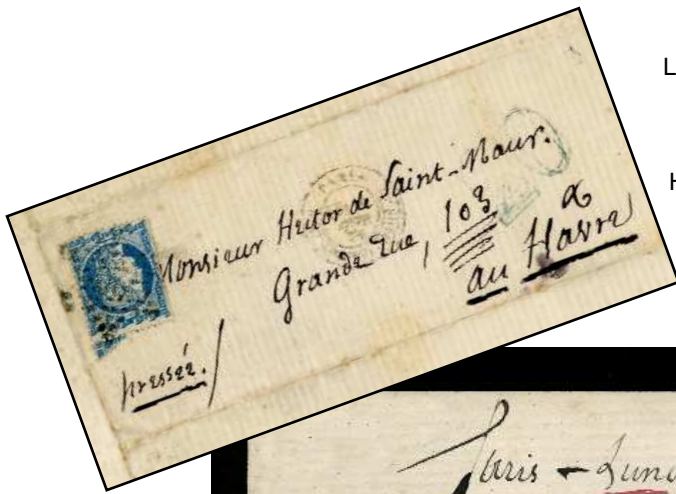 L
H
Monsieur Hector de Saint-Maur.
Grande rue, 103
au Havre
pressée.
Paris - Lun